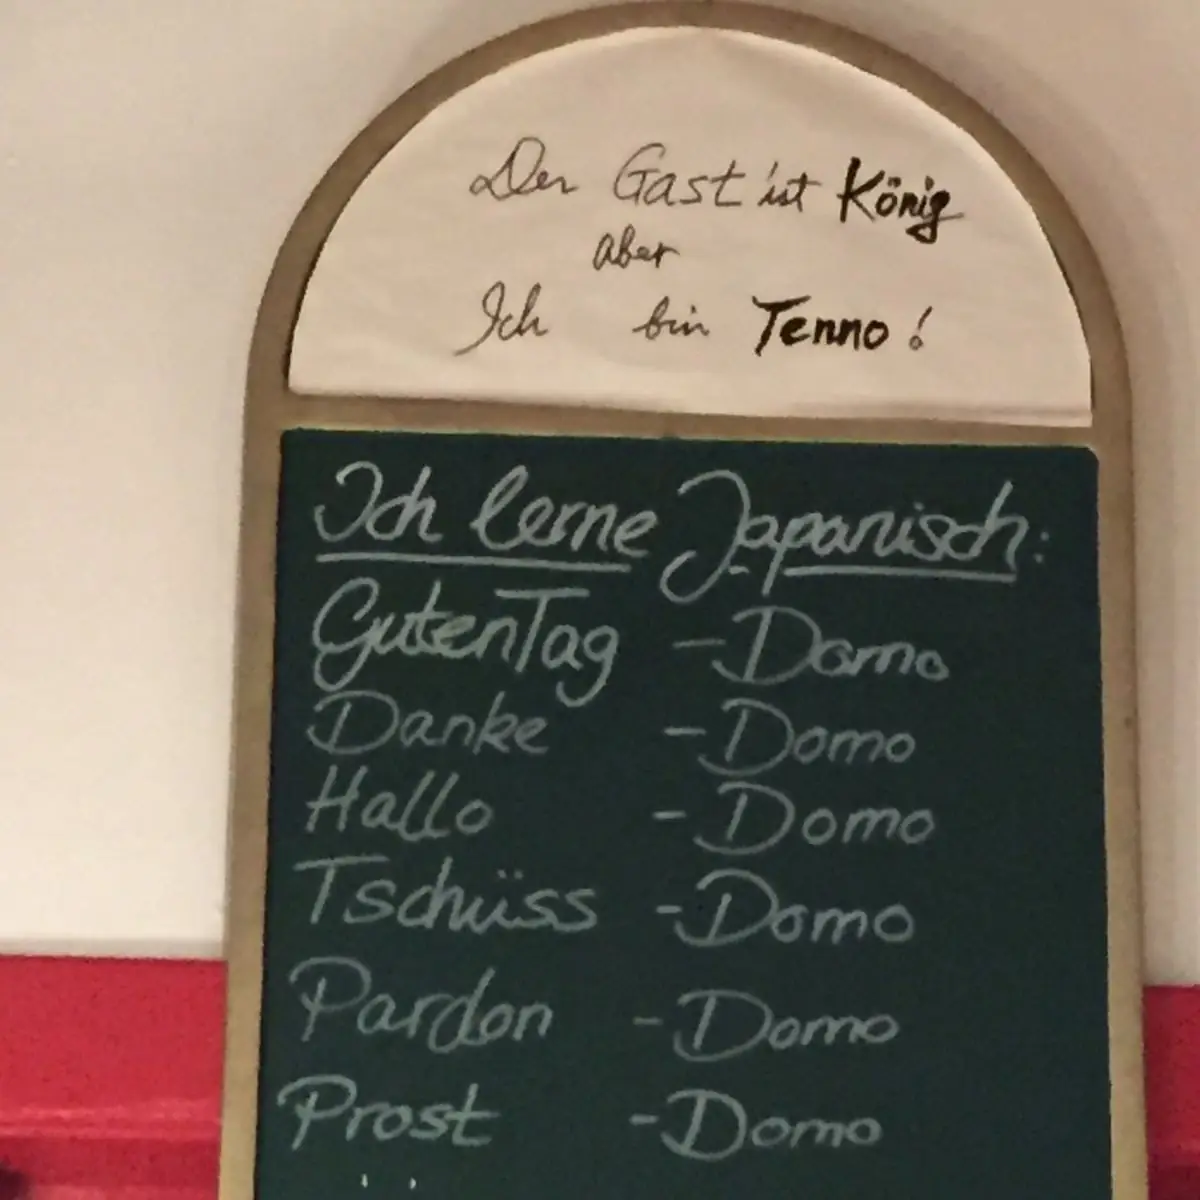 Der Gast ist König
aber
Ich bin Tenno!
Ich lerne Japanisch:
Guten Tag - Domo
Danke - Domo
Hallo - Domo
Tschüss - Domo
Pardon - Domo
Prost - Domo